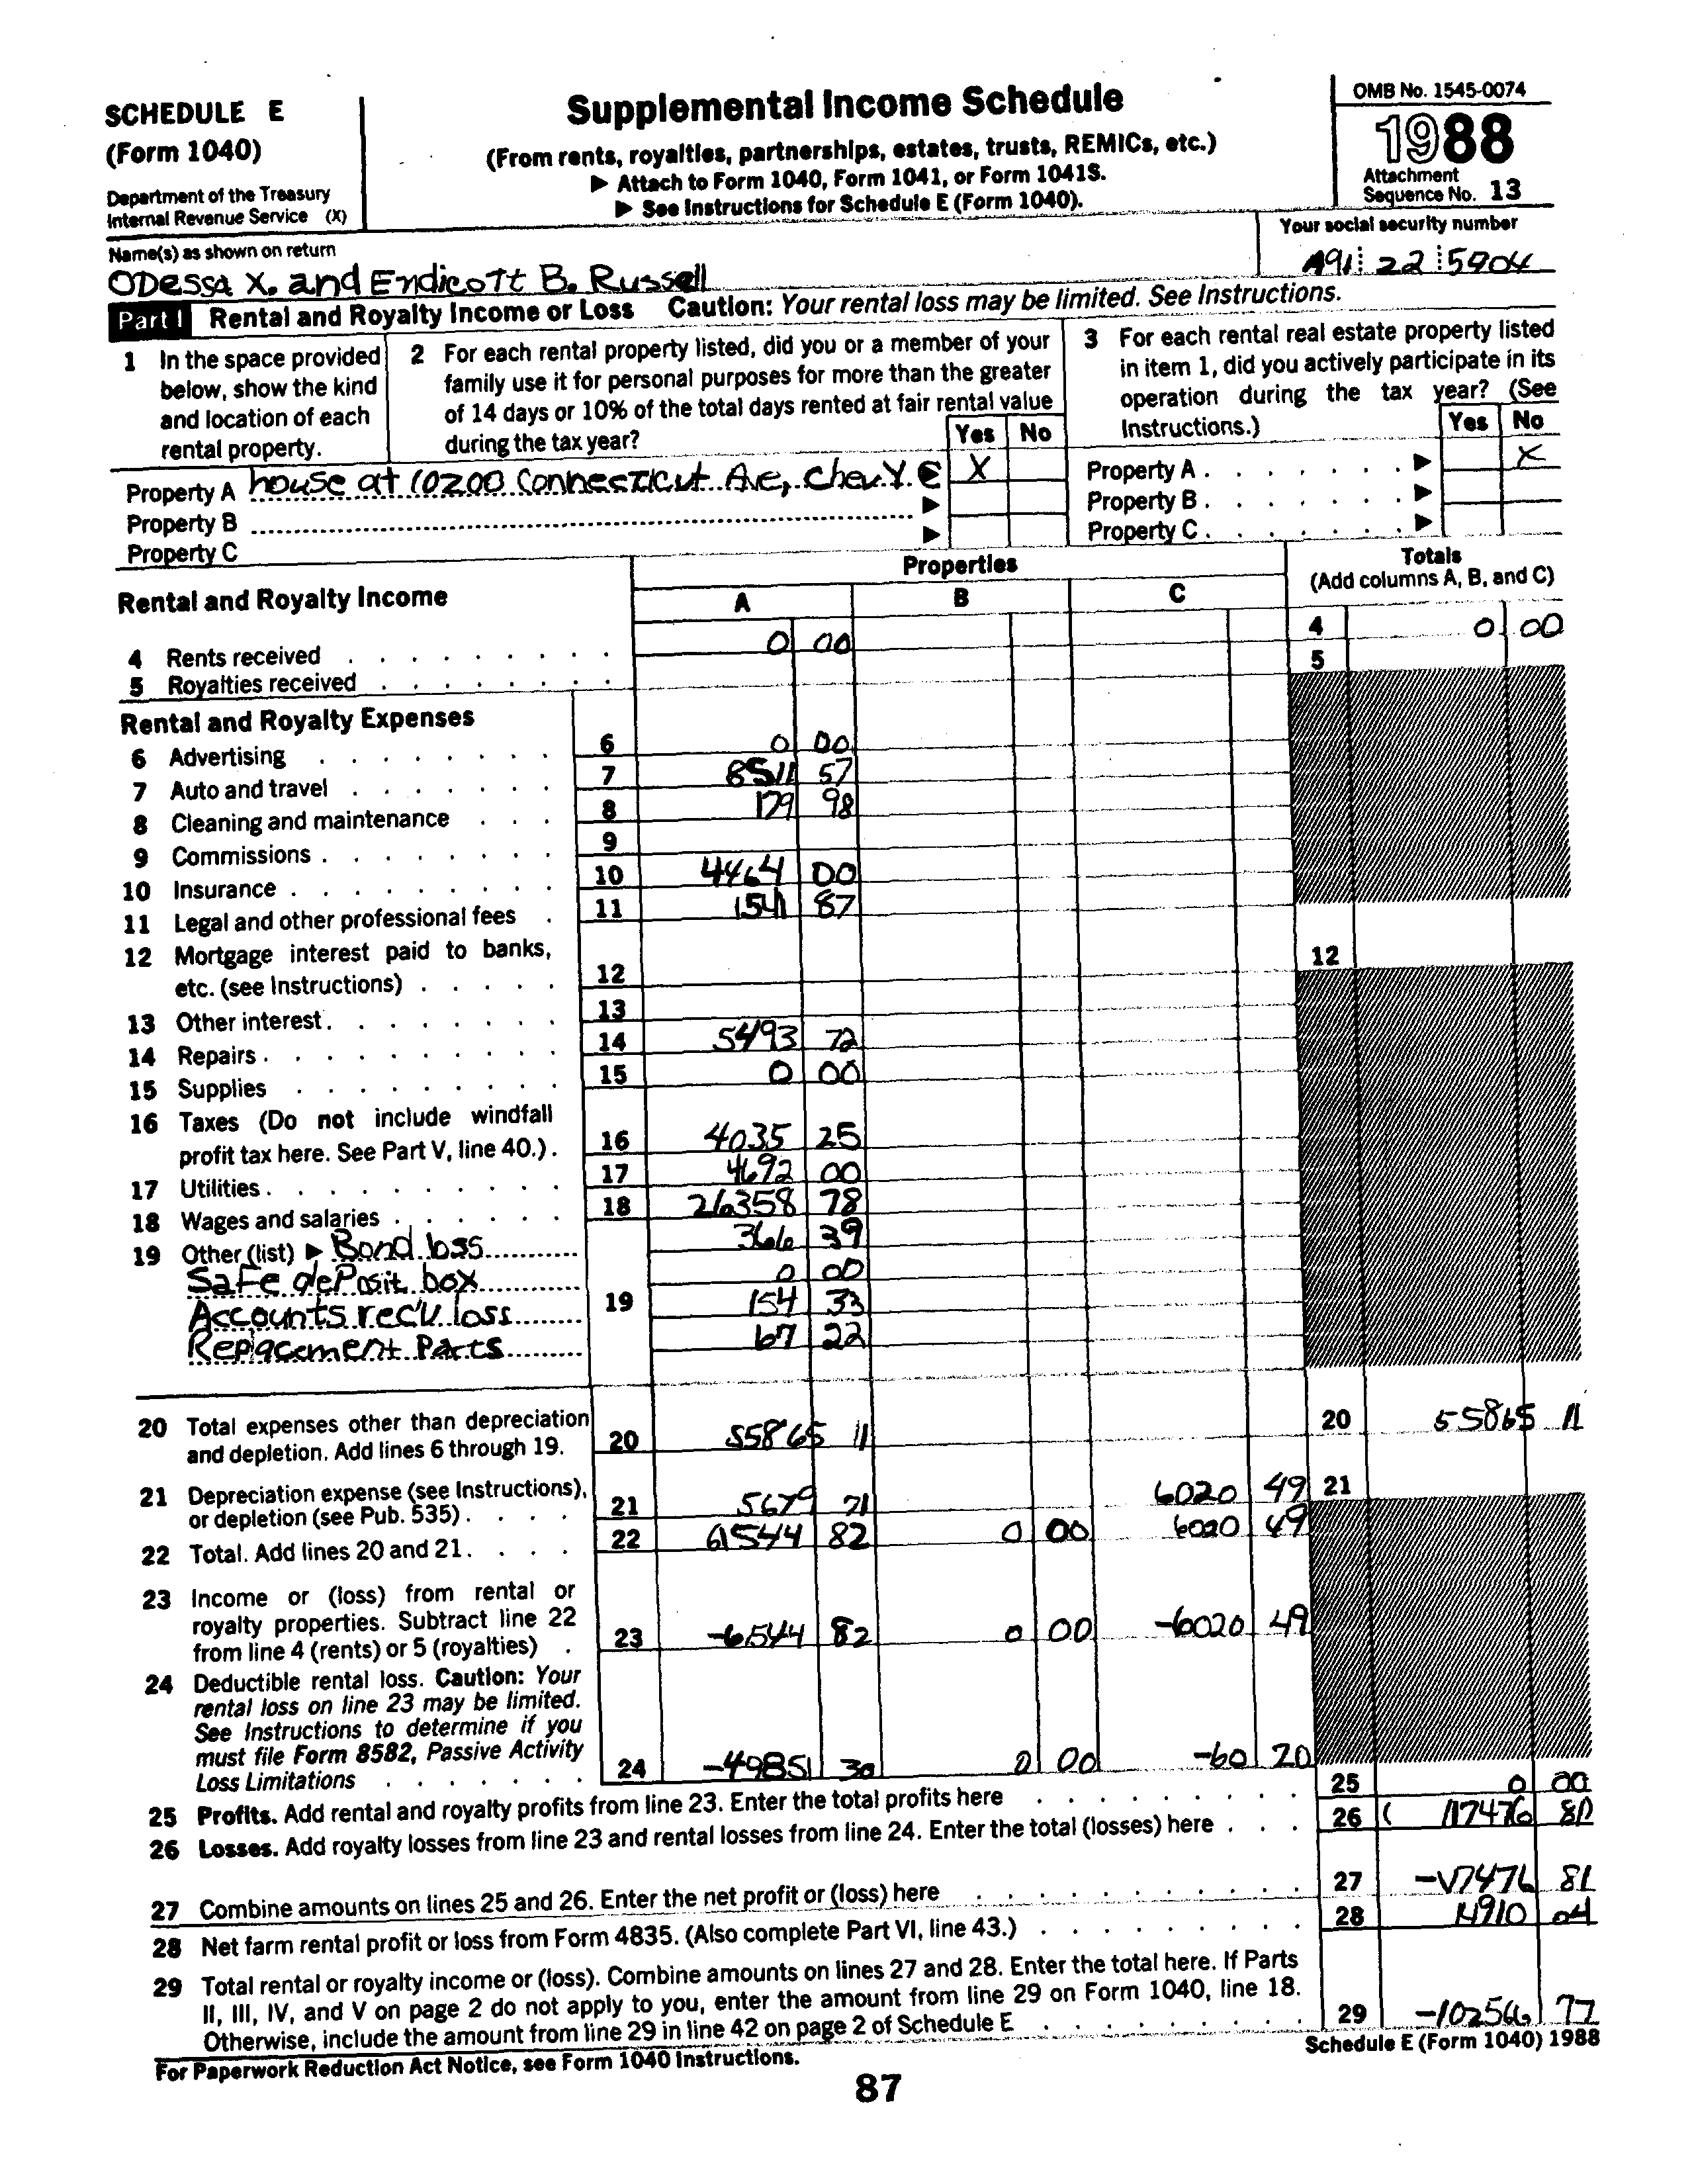 SCHEDULE E
(Form 1040)
Department of the Treasury
Internal Revenue Service (X)
Supplemental Income Schedule
(From rents, royalties, partnerships, estates, trusts, REMICs, etc.)
▶ Attach to Form 1040, Form 1041, or Form 1041S.
▶ See Instructions for Schedule E (Form 1040).
OMB No. 1545-0074
1988
Attachment
Sequence No. 13
Name(s) as shown on return
Your social security number
ODessa X. and Endicott B. Russell
491 22 5904
Part I Rental and Royalty Income or Loss Caution: Your rental loss may be limited. See Instructions.
1 In the space provided
below, show the kind
and location of each
rental property.
2 For each rental property listed, did you or a member of your
family use it for personal purposes for more than the greater
of 14 days or 10% of the total days rented at fair rental value
during the tax year?
Yes No
3 For each rental real estate property listed
in item 1, did you actively participate in its
operation during the tax year? (See
Instructions.)
Yes No
Property A house at 10200 Connecticut Ave, Chevy C ▶ X
Property B ▶
Property C ▶
Property A ▶ X
Property B ▶
Property C ▶
Rental and Royalty Income
Properties
A B C
Totals
(Add columns A, B, and C)
4 Rents received 0 00 4 0 00
5 Royalties received 5
Rental and Royalty Expenses
6 Advertising 6 0 00
7 Auto and travel 7 8511 57
8 Cleaning and maintenance 8 179 98
9 Commissions 9
10 Insurance 10 4464 00
11 Legal and other professional fees 11 1541 87
12 Mortgage interest paid to banks,
etc. (see Instructions) 12 12
13 Other interest 13
14 Repairs 14 5493 72
15 Supplies 15 0 00
16 Taxes (Do not include windfall
profit tax here. See Part V, line 40.) 16 4035 25
17 Utilities 17 4692 00
18 Wages and salaries 18 26358 78
19 Other (list) ▶ Bond loss 366 39
Safe dePosit box 0 00
Accounts rec'v loss 19 154 33
Replacement Parts 67 22
20 Total expenses other than depreciation
and depletion. Add lines 6 through 19. 20 55865 11 20 55865 11
21 Depreciation expense (see Instructions),
or depletion (see Pub. 535) 21 5679 71 6020 49 21
22 Total. Add lines 20 and 21 22 61544 82 0 00 6020 49
23 Income or (loss) from rental or
royalty properties. Subtract line 22
from line 4 (rents) or 5 (royalties) 23 82 0 00 -6020 49
24 Deductible rental loss. Caution: Your
rental loss on line 23 may be limited.
See Instructions to determine if you
must file Form 8582, Passive Activity
Loss Limitations 24 -49851 30 0 00 -60 20
25 Profits. Add rental and royalty profits from line 23. Enter the total profits here 25 0 00
26 Losses. Add royalty losses from line 23 and rental losses from line 24. Enter the total (losses) here 26 (
27 Combine amounts on lines 25 and 26. Enter the net profit or (loss) here 27 81
28 Net farm rental profit or loss from Form 4835. (Also complete Part VI, line 43.) 28 14910 04
29 Total rental or royalty income or (loss). Combine amounts on lines 27 and 28. Enter the total here. If Parts
II, III, IV, and V on page 2 do not apply to you, enter the amount from line 29 on Form 1040, line 18.
Otherwise, include the amount from line 29 in line 42 on page 2 of Schedule E 29 -102566 77
For Paperwork Reduction Act Notice, see Form 1040 Instructions.
Schedule E (Form 1040) 1988
87